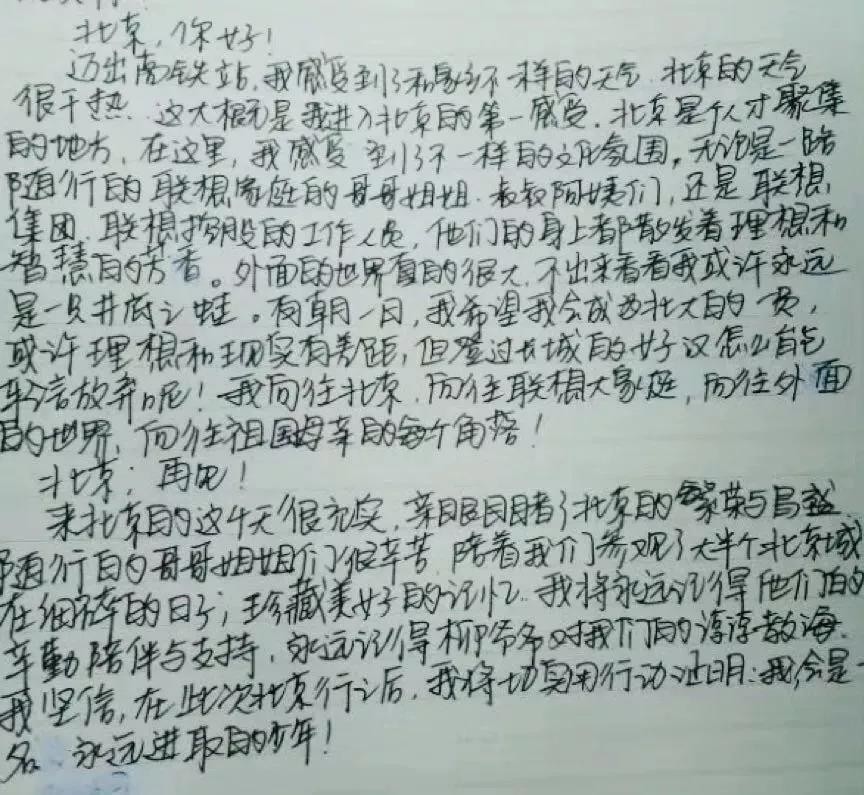 北京，你好！
迈出高铁站，我感受到了和家乡不一样的天气，北京的天气
很干热，这大概是我进入北京的第一感受。北京是个人才聚集
的地方，在这里，我感受到了不一样的文化氛围，无论是一路
随行的联想家庭的哥哥姐姐、叔叔阿姨们，还是联想
集团、联想控股的工作人员，他们的身上都散发着理想和
智慧的芳香。外面的世界真的很大，不出来看看我或许永远
是一只井底之蛙。有朝一日，我希望我会成为北大的一员，
或许理想和现实有差距，但登过长城的好汉怎么能
轻言放弃呢！我向往北京，向往联想大家庭，向往外面
的世界，向往祖国母亲的每个角落！
北京，再见！
来北京的这4天很充实，亲眼目睹了北京的繁荣与昌盛，
随行的哥哥姐姐们很辛苦，陪着我们参观了大半个北京城
在细碎的日子，珍藏美好的记忆。我将永远记得他们的
辛勤陪伴与支持，永远记得柳爷爷对我们的谆谆教诲，
我坚信，在此次北京行之后，我将切实用行动证明：我会是一
名永远进取的少年！